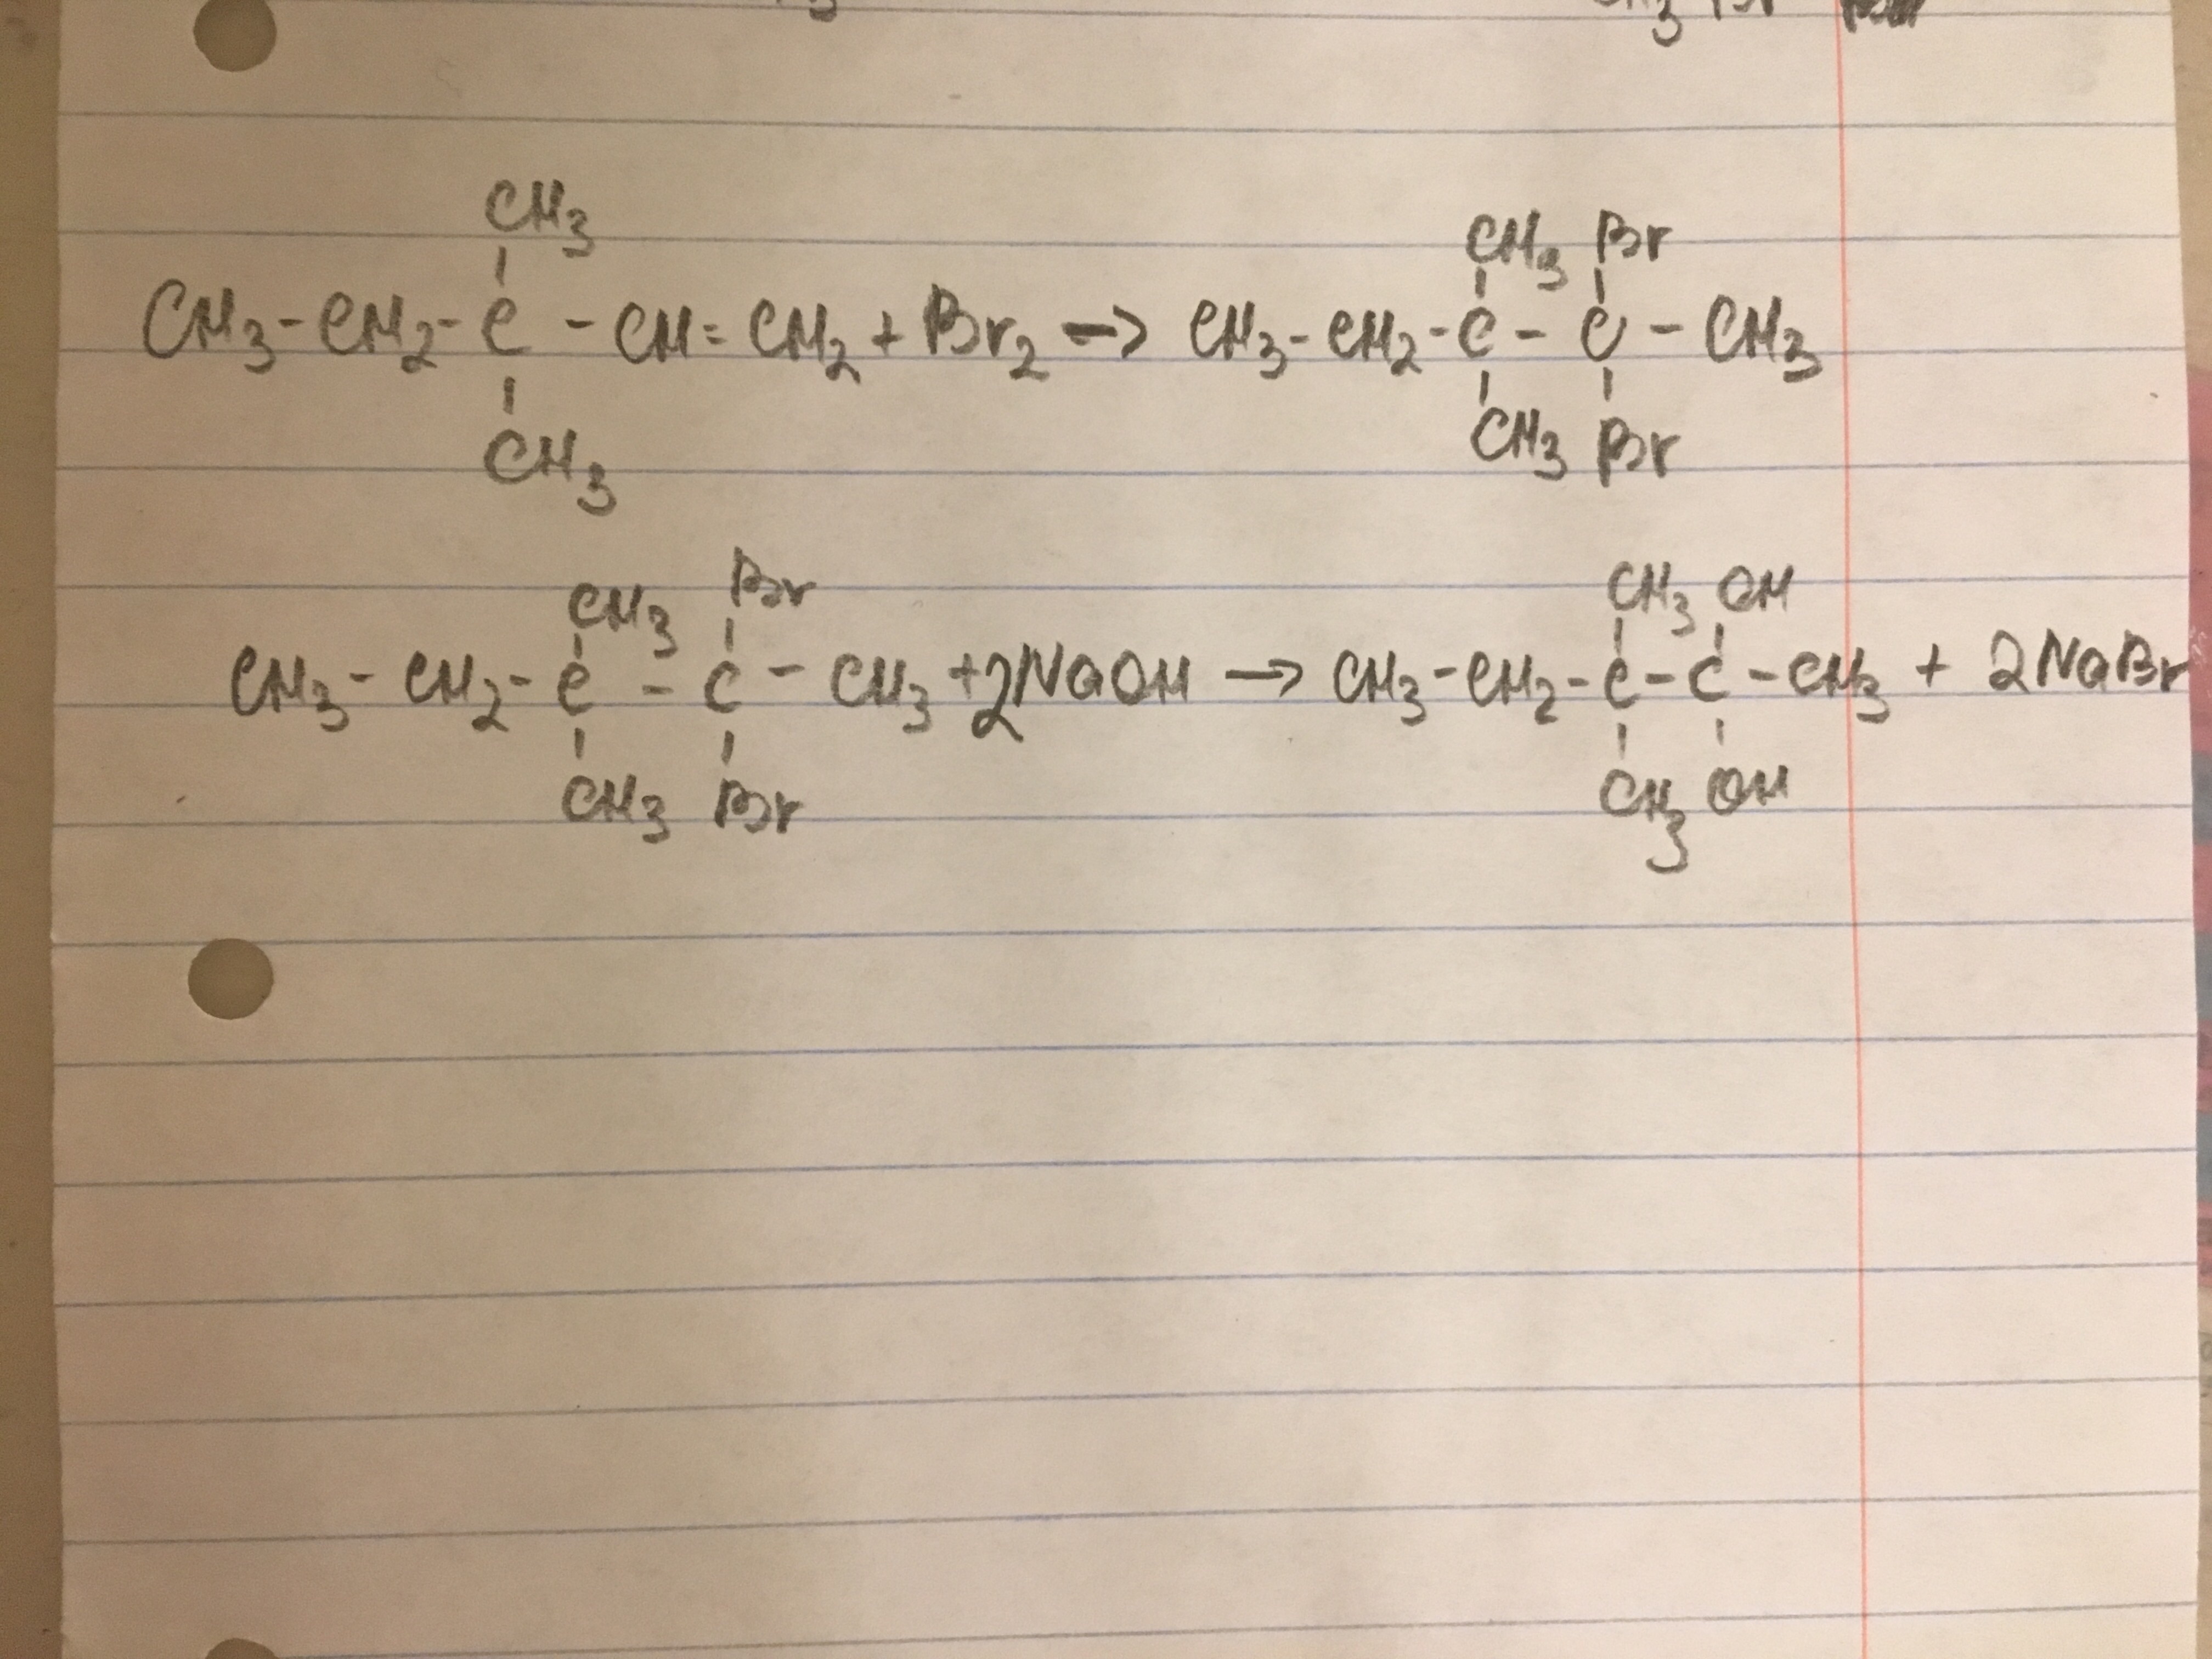 CH3 CH3 Br
CH3-CH2-C-CH=CH2+Br2->CH3-CH2-C-C-CH3
CH3 CH3 Br
CH3 Br CH3 OH
CH3-CH2-C-C-CH3+2NaOH->CH3-CH2-C-C-CH3+2NaBr
CH3 Br CH3 OH